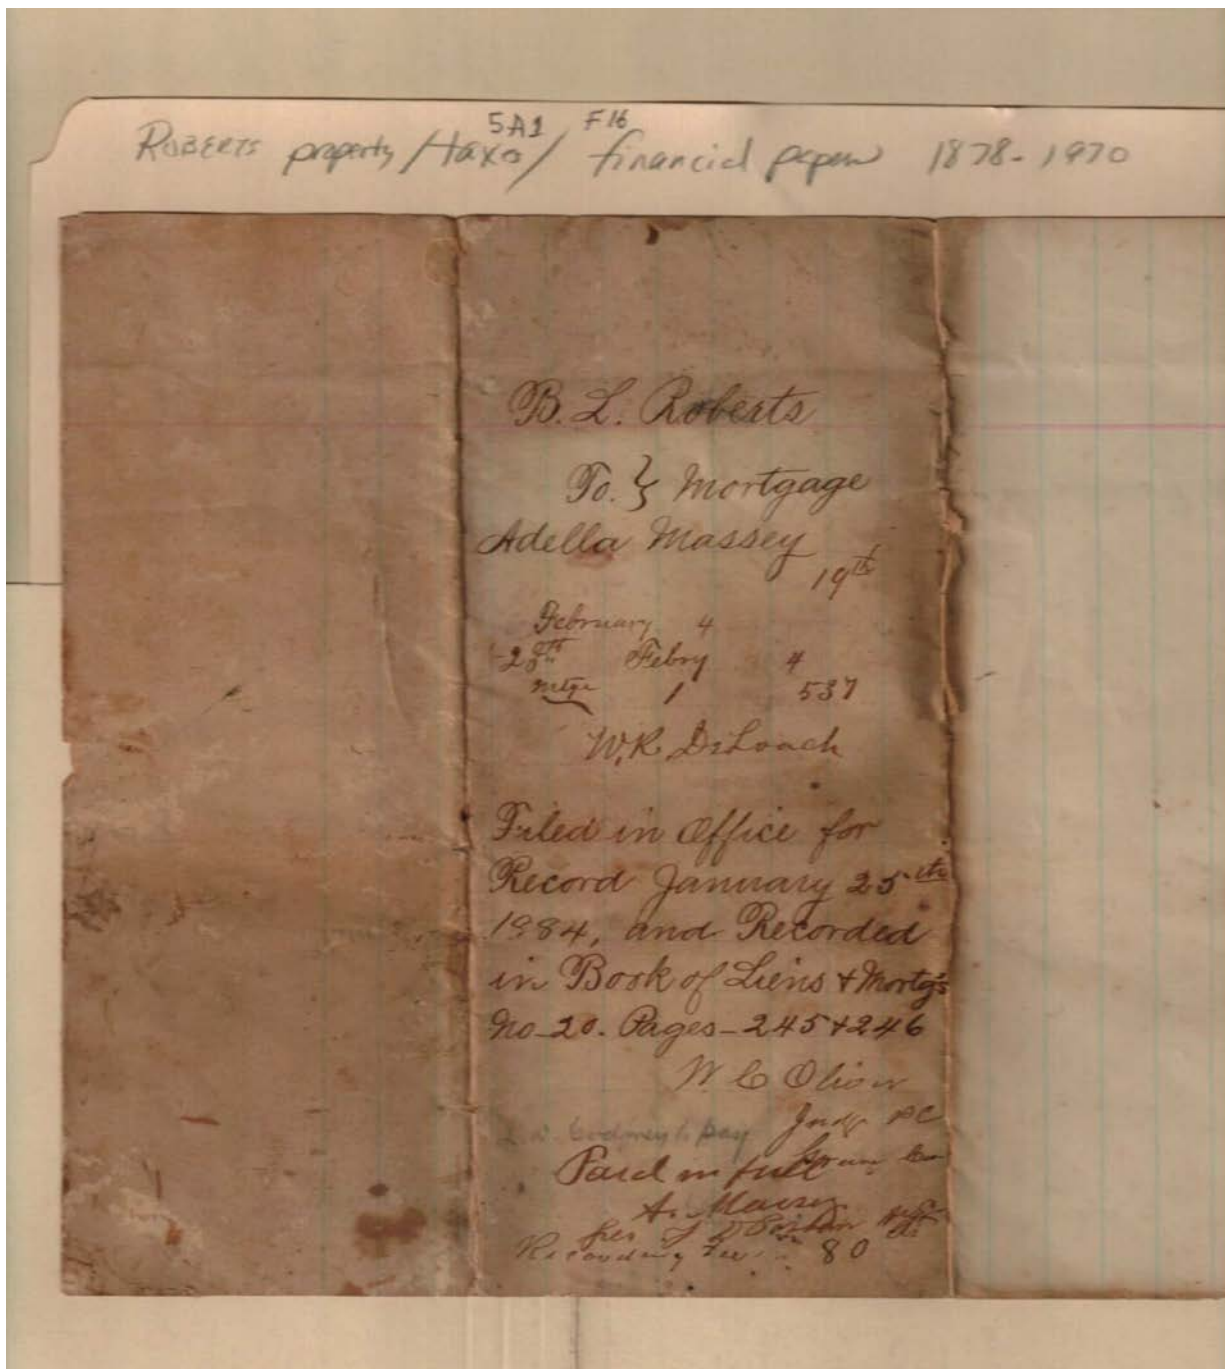 5A1 F16
ROBERTS property / taxes / financial papers 1878-1970
B. L. Roberts
To. } Mortgage
Adella Massey
19th
February 4
28th Febry 4
Mtge 1 537
W. R. DeLoach
Filed in Office for
Record January 25th
1884, and Recorded
in Book of Liens & Mortg's
No. 20. Pages - 245 & 246
W C Oliver
Judge PC
to pay
Paid in full
A. Massey
per
Recording Fee 80